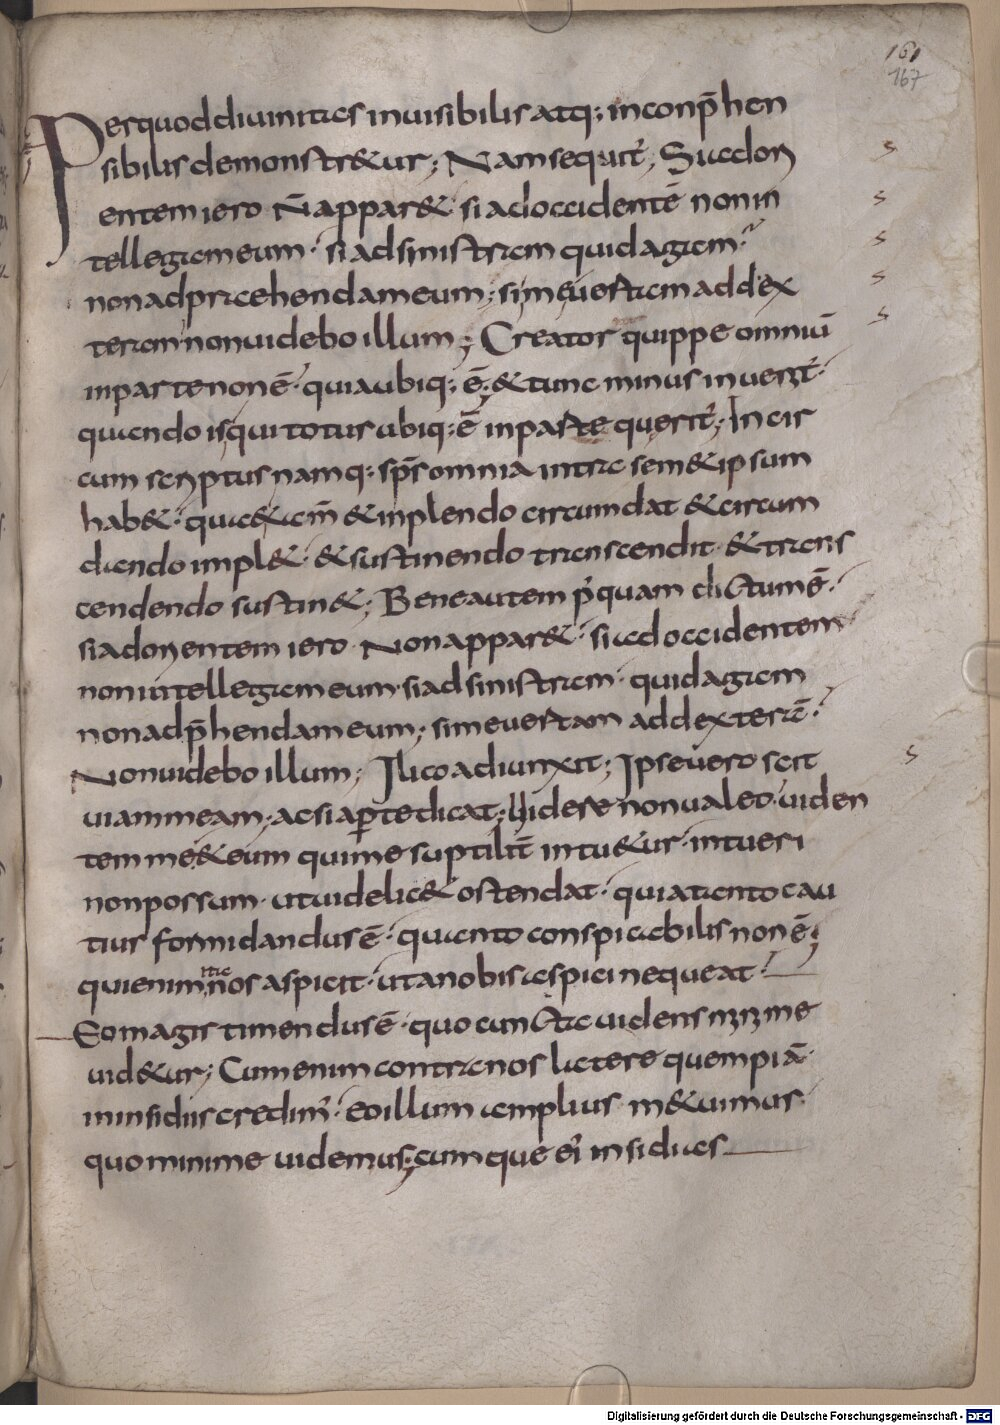 161
167
Per quod diuinitas inuisibilis atq; inconp̄hen
sibilis demonstr&ur; Nam sequit̄; Si ad ori
entem iero N̄ appar& · si ad occidentē non in
tellegam eum · si ad sinistram quid agam ·
non adpraehendam eum; si me uertam ad dex
teram non uidebo illum; Creator quippe omniū
in parte non ē · quia ubiq; ē; & tunc minus inuenit̄ ·
quando is qui totus ubiq; ē in parte querit̄; In cir
cum scriptus namq; sp̄s omnia intra sem&ipsum
hab& · quae tam̄ & inplendo circumdat & circum
dando impl& · & sustinendo transcendit · & trans
cendendo sustin&; Bene autem p̄quam dictum ē ·
si ad orientem iero · Non appar& · si ad occidentem
non intellegam eum · si ad sinistram · quid agam
non adp̄hendam eum; si me uertam ad dexterā ·
Non uidebo illum; Ilico adiunxit; Ipse uero scit
uiam meam · ac si aperte dicat; Uidere non ualeo uiden
tem me & eum qui me suptilit̄ intu&ur · intueri
non possum · ut uidelic& ostendat · quia tanto cau
tius formidandus ē · quanto conspicabilis non ē;
qui enim ita nos aspicit · ut a nobis aspici nequeat ·
Eo magis timendus ē · quo cuncta uidens minime
uid&ur; Cum enim contra nos latere quempiā ·
in insidiis credim̄ · eo illum amplius m&uimus ·
quo minime uidemus; cumque ei insidias
Digitalisierung gefördert durch die Deutsche Forschungsgemeinschaft - DFG